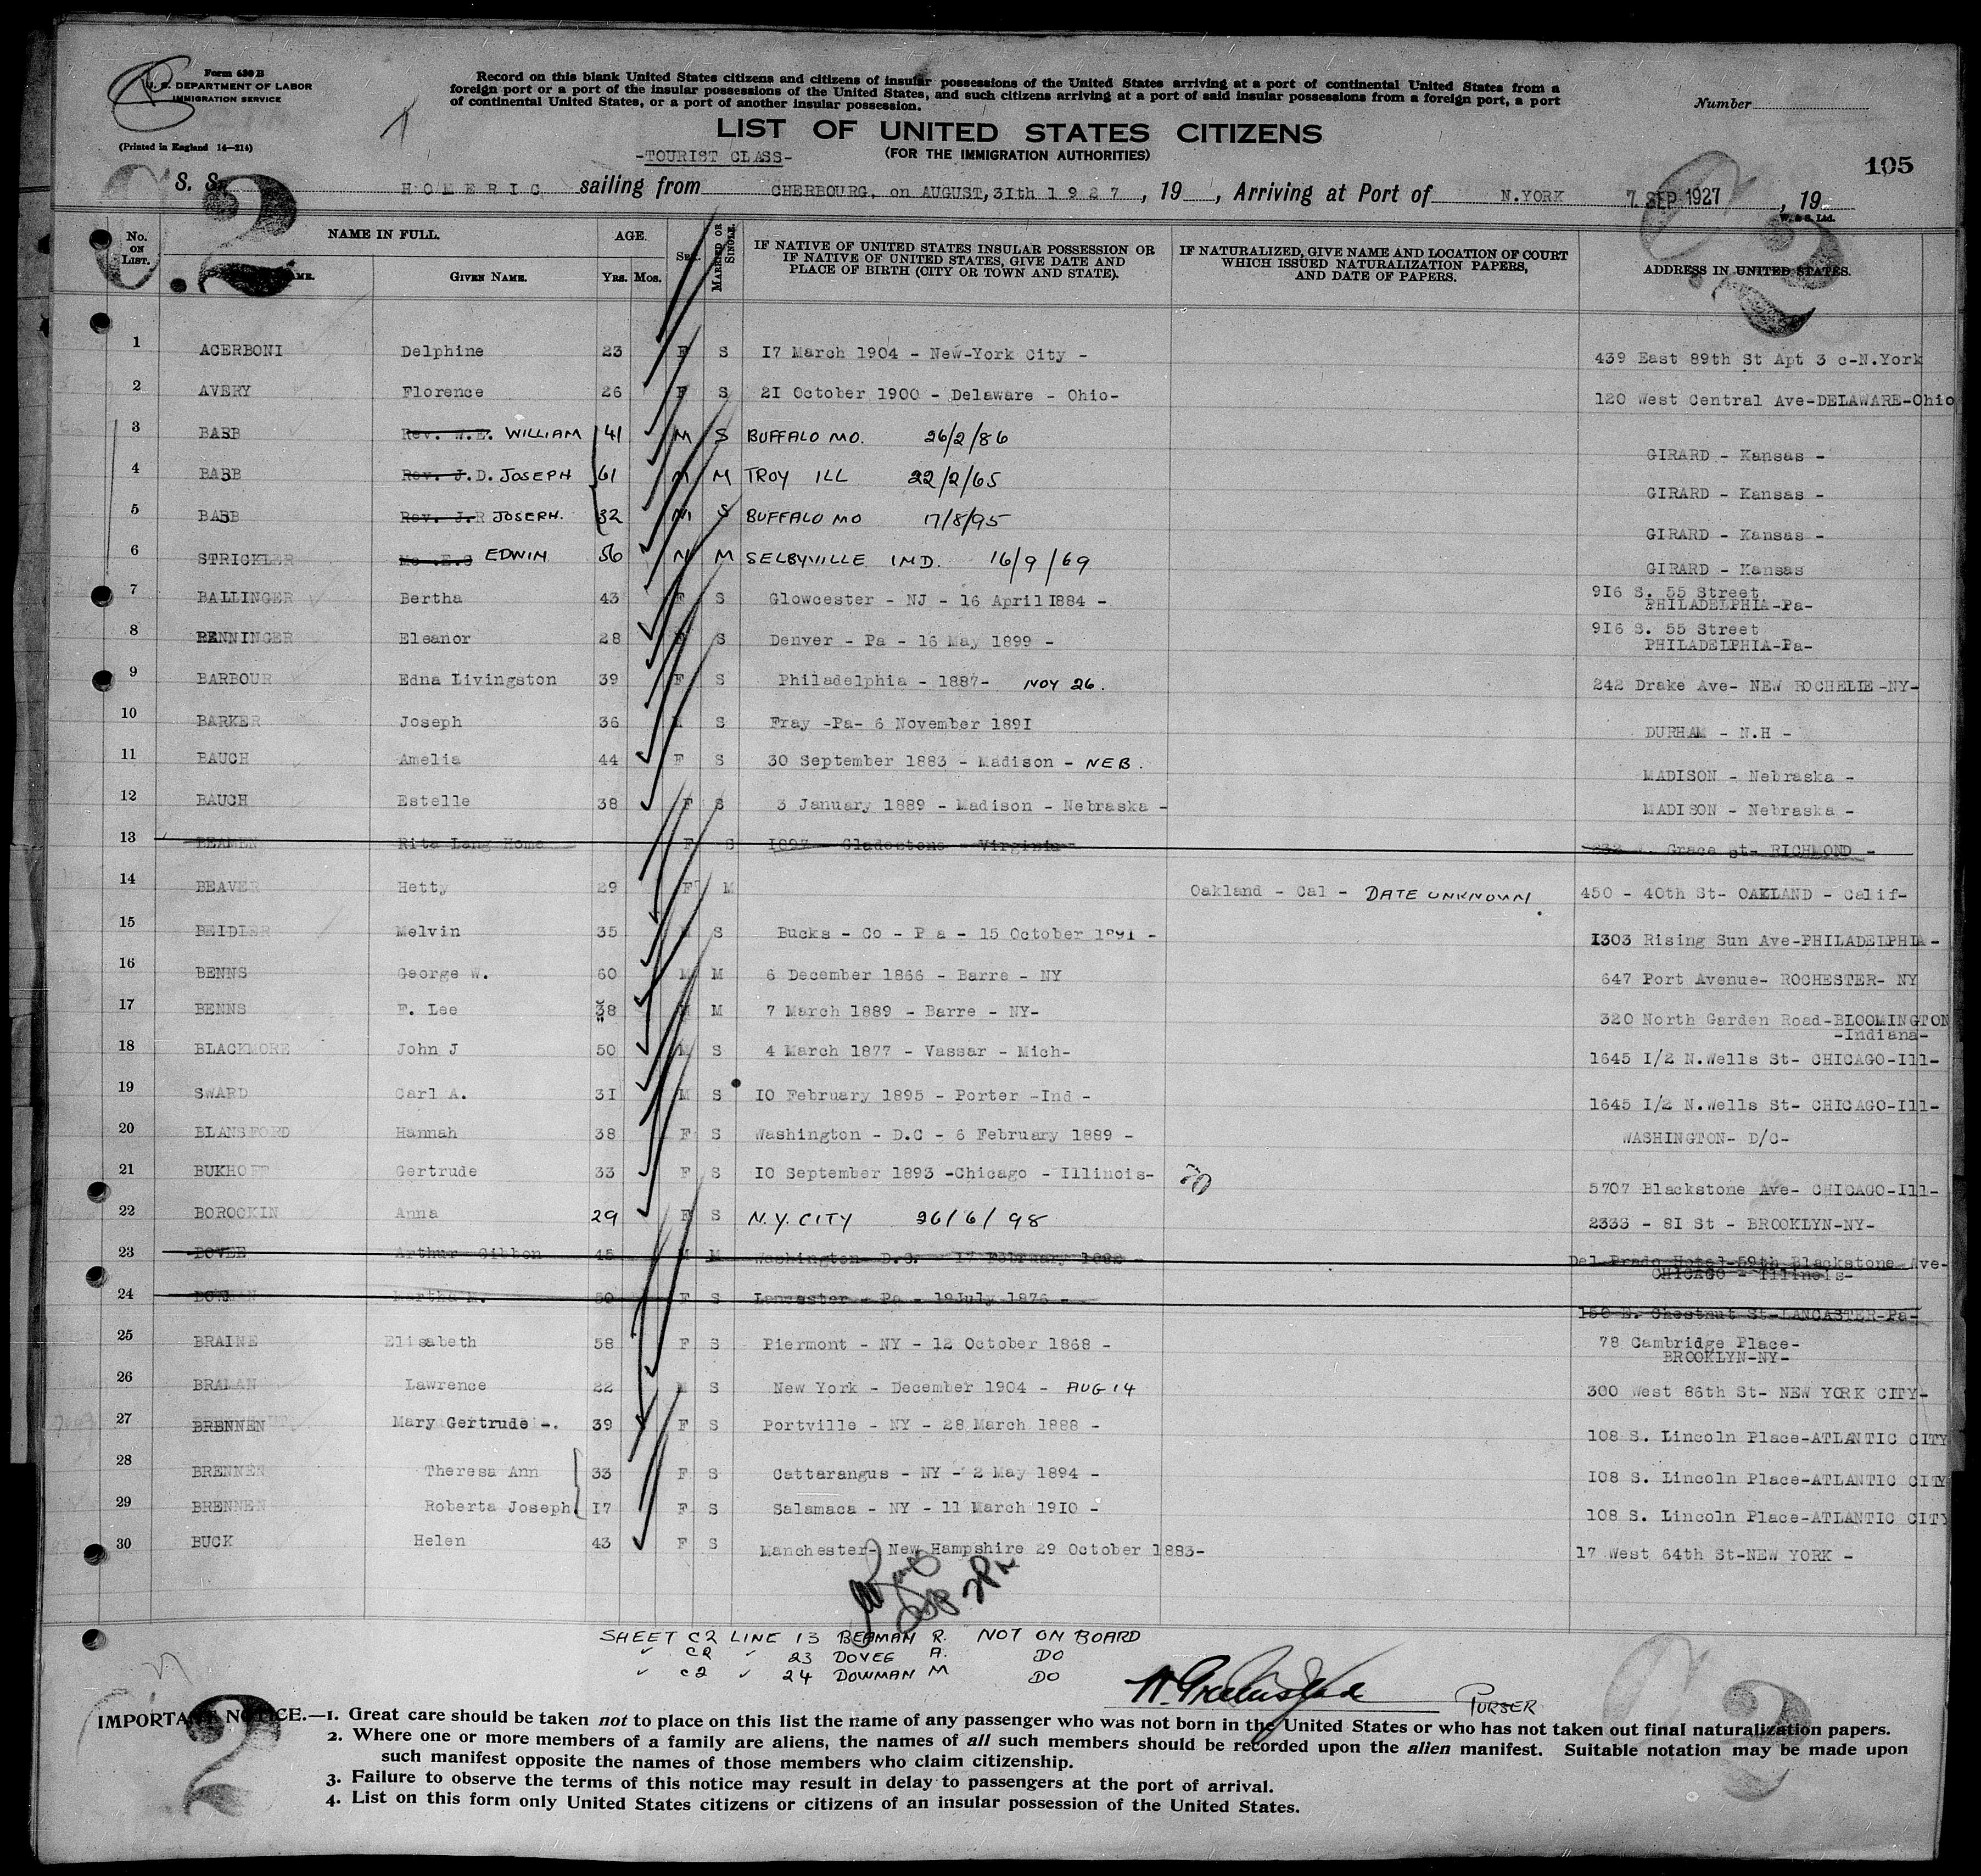 Form 630 B
U. S. DEPARTMENT OF LABOR
IMMIGRATION SERVICE
(Printed in England 14—214)
Record on this blank United States citizens and citizens of insular possessions of the United States arriving at a port of continental United States from a
foreign port or a port of the insular possessions of the United States, and such citizens arriving at a port of said insular possessions from a foreign port, a port
of continental United States, or a port of another insular possession.
Number
LIST OF UNITED STATES CITIZENS
-TOURIST CLASS-
(FOR THE IMMIGRATION AUTHORITIES)
105
S. S. HOMERIC sailing from CHERBOURG, on AUGUST, 3Ith 1927, 19 , Arriving at Port of N.YORK 7 SEP 1927, 19
W. & S. Ltd.
No. ON LIST. NAME IN FULL. GIVEN NAME. AGE. Yrs. Mos. SEX. MARRIED OR SINGLE. IF NATIVE OF UNITED STATES INSULAR POSSESSION OR IF NATIVE OF UNITED STATES, GIVE DATE AND PLACE OF BIRTH (CITY OR TOWN AND STATE). IF NATURALIZED, GIVE NAME AND LOCATION OF COURT WHICH ISSUED NATURALIZATION PAPERS, AND DATE OF PAPERS. ADDRESS IN UNITED STATES.
1 ACERBONI Delphine 23 F S I7 March 1904 - New-York City - 439 East 89th St Apt 3 c-N.York
2 AVERY Florence 26 F S 2I October 1900 - Delaware - Ohio- 120 West Central Ave-DELAWARE-Ohio
3 BABB Rev. W.E. WILLIAM 41 M S BUFFALO MO. 26/2/86 GIRARD - Kansas -
4 BABB Rev. J.D. JOSEPH 61 M M TROY ILL 22/2/65 GIRARD - Kansas -
5 BABB Rev. J.R JOSEPH. 32 M S BUFFALO MO 17/8/95 GIRARD - Kansas -
6 STRICKLER EDWIN 56 M M SELBYVILLE IND. 16/9/69 GIRARD - Kansas
7 BALLINGER Bertha 43 F S Glowcester - NJ - 16 April I884 - 9I6 S. 55 Street PHILADELPHIA-Pa-
8 RENNINGER Eleanor 28 F S Denver - Pa - 16 May 1899 - 9I6 S. 55 Street PHILADELPHIA-Pa-
9 BARBOUR Edna Livingston 39 F S Philadelphia - 1887- NOV 26. 242 Drake Ave- NEW ROCHELLE-NY-
10 BARKER Joseph 36 M S Fray -Pa- 6 November 189I DURHAM - N.H -
11 BAUCH Amelia 44 F S 30 September 1883 - Madison - NEB. MADISON - Nebraska -
12 BAUCH Estelle 38 F S 3 January 1889 - Madison - Nebraska - MADISON - Nebraska -
13 BEAMEN Rita Lang Home F S 1897 - Gladestone - Virginia- Grace st- RICHMOND -
14 BEAVER Hetty 29 F M Oakland - Cal - DATE UNKNOWN. 450 - 40th St- OAKLAND - Calif-
15 BEIDLER Melvin 35 M S Bucks - Co - P a - 15 October 1891 - I303 Rising Sun Ave-PHILADELPHIA-
16 BENNS George W. 60 M M 6 December 1866 - Barre - NY 647 Port Avenue- ROCHESTER- NY
17 BENNS F. Lee 38 M M 7 March 1889 - Barre - NY- 320 North Garden Road-BLOOMINGTON -Indiana-
18 BLACKMORE John J 50 M S 4 March 1877 - Vassar - Mich- 1645 I/2 N.Wells St- CHICAGO-Ill-
19 SWARD Carl A. 3I M S IO February 1895 - Porter -Ind - 1645 I/2 N.Wells St- CHICAGO-Ill-
20 BLANSFORD Hannah 38 F S Washington - D.C - 6 February 1889 - WASHINGTON- D/C-
21 BUKHOFF Gertrude 33 F S IO September 1893 -Chicago - Illinois- 5707 Blackstone Ave- CHICAGO-Ill-
22 BOROCKIN Anna 29 F S N.Y. CITY 26/6/98 2333 - 8I St - BROOKLYN-NY-
23 DOVEE Arthur Gibbon 45 M M Washington D.C. - I7 February 1882 - Del Prado Hotel-59th Blackstone Ave- CHICAGO - Illinois-
24 DOWMAN Martha M. 50 F S Lancaster - Pa - 19July 1876 - 150 E. Chestnut St-LANCASTER-Pa-
25 BRAINE Elisabeth 58 F S Piermont - NY - 12 October 1868 - 78 Cambridge Place- BROOKLYN-NY-
26 BRALAN Lawrence 22 M S New York - December 1904 - AUG 14 300 West 86th St- NEW YORK CITY-
27 BRENNEN Mary Gertrude -. 39 F S Portville - NY - 28 March 1888 - 108 S. Lincoln Place-ATLANTIC CITY
28 BRENNEN Theresa Ann 33 F S Cattarangus - NY - 2 May 1894 - I08 S. Lincoln Place-ATLANTIC CITY
29 BRENNEN Roberta Joseph. I7 F S Salamaca - NY - 11 March 19I0 - 108 S. Lincoln Place-ATLANTIC CITY
30 BUCK Helen 43 F S Manchester- New Hampshire 29 October 1883- 17 West 64th St-NEW YORK -
SHEET C2 LINE 13 BEAMAN R. NOT ON BOARD
✓ C2 ✓ 23 DOVEE A. DO
✓ C2 ✓ 24 DOWMAN M DO
PURSER
IMPORTANT NOTICE.—1. Great care should be taken not to place on this list the name of any passenger who was not born in the United States or who has not taken out final naturalization papers.
2. Where one or more members of a family are aliens, the names of all such members should be recorded upon the alien manifest. Suitable notation may be made upon
such manifest opposite the names of those members who claim citizenship.
3. Failure to observe the terms of this notice may result in delay to passengers at the port of arrival.
4. List on this form only United States citizens or citizens of an insular possession of the United States.